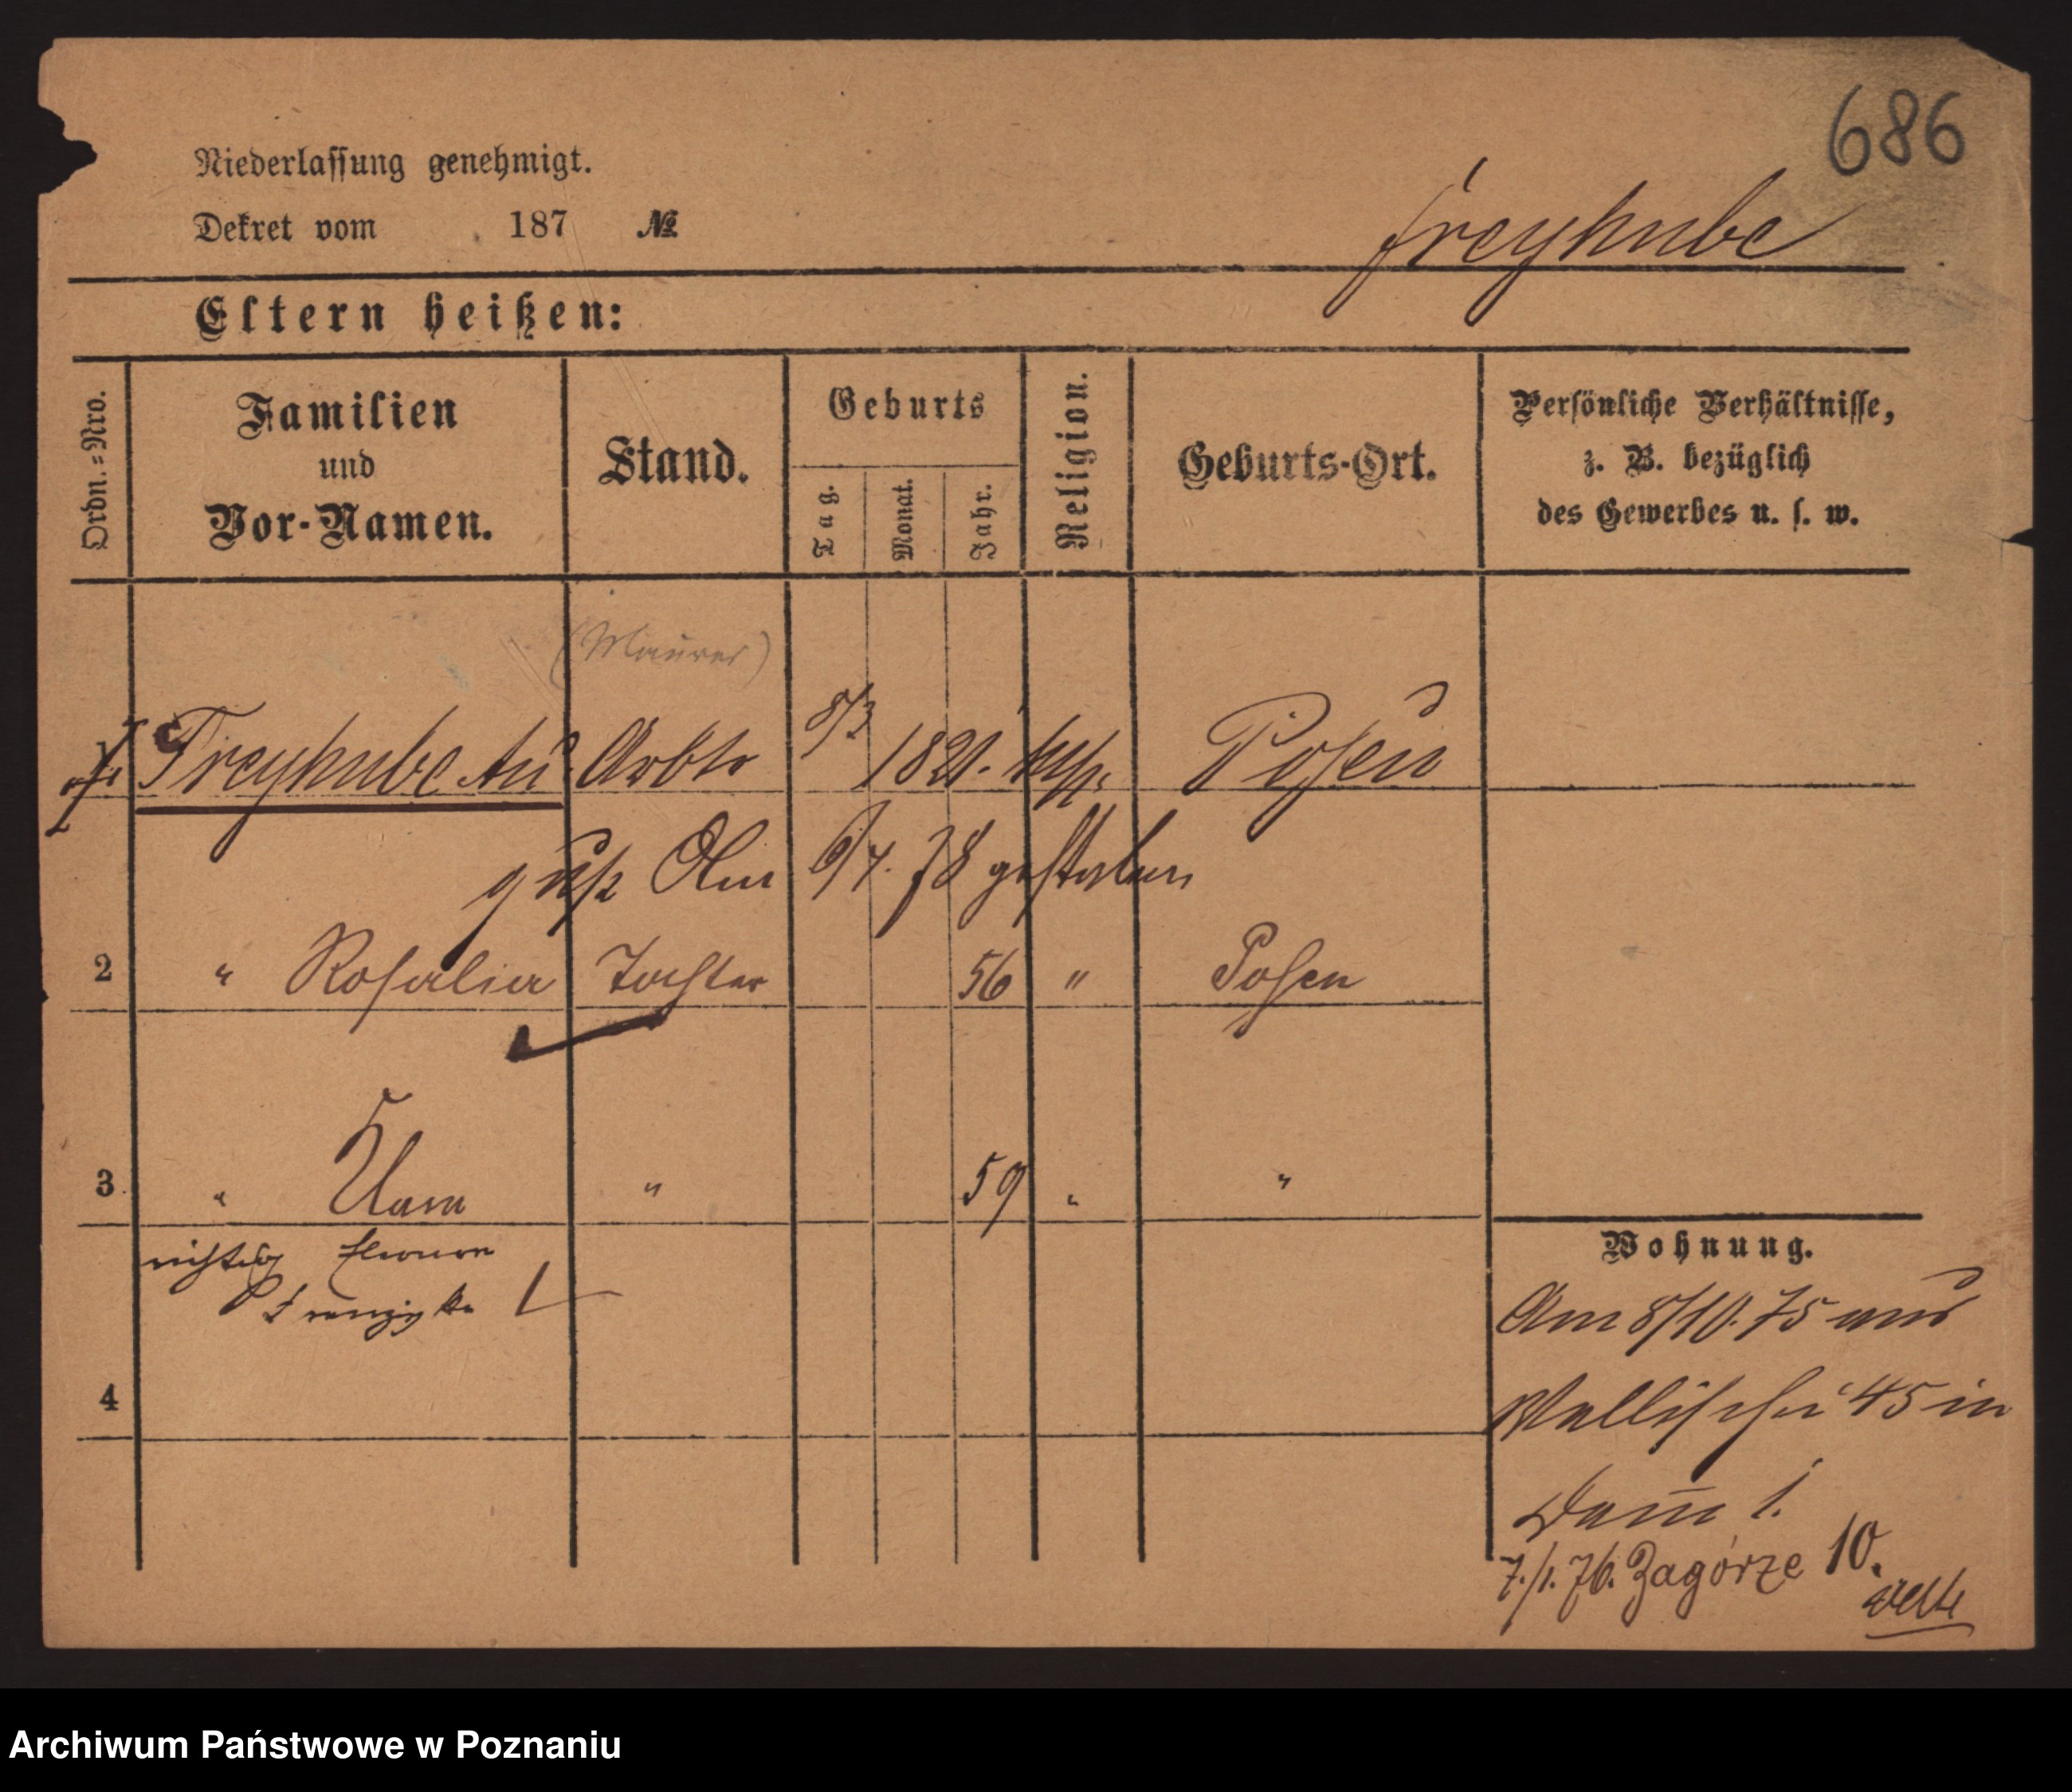 686
Niederlassung genehmigt.
Dekret vom 187 №
Freyhube
Eltern heißen:
Ordn.=Nro.
Familien
und
Vor-Namen.
Stand.
Geburts
Tag.
Monat.
Jahr.
Religion.
Geburts-Ort.
Persönliche Verhältnisse,
z. B. bezüglich
des Gewerbes u. s. w.
(Maurer)
1 Freyhube Arbtr 8/3 1821. kth. Posen
6/4. 78 gestorben
2 " Rosalia Tochter 56 " Posen
3 " " 59 " "
richtig
Franziska
4
Wohnung.
Am 8/10. 75 aus
Wallischei 45 in
Dam̄ 1.
7./1. 76. Zagórze 10.
Archiwum Państwowe w Poznaniu